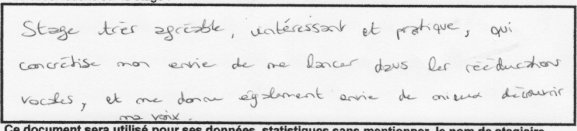 Stage très agréable, intéressant et pratique, qui
concrétise mon envie de me lancer dans les rééducations
vocales, et me donne également envie de mieux découvrir
ma voix.
Ce document sera utilisé pour ses données statistiques sans mentionner le nom de stagiaire